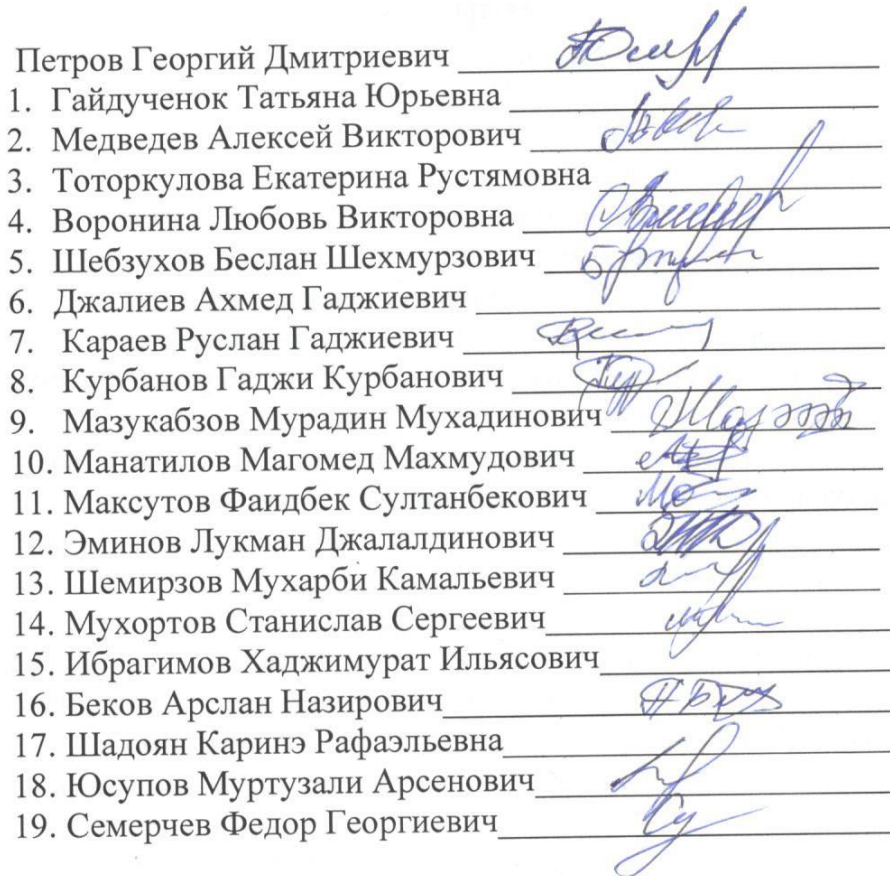 Петров Георгий Дмитриевич
1. Гайдученок Татьяна Юрьевна
2. Медведев Алексей Викторович
3. Тоторкулова Екатерина Рустямовна
4. Воронина Любовь Викторовна
5. Шебзухов Беслан Шехмурзович
6. Джалиев Ахмед Гаджиевич
7. Караев Руслан Гаджиевич
8. Курбанов Гаджи Курбанович
9. Мазукабзов Мурадин Мухадинович
10. Манатилов Магомед Махмудович
11. Максутов Фаидбек Султанбекович
12. Эминов Лукман Джалалдинович
13. Шемирзов Мухарби Камальевич
14. Мухортов Станислав Сергеевич
15. Ибрагимов Хаджимурат Ильясович
16. Беков Арслан Назирович
17. Шадоян Каринэ Рафаэльевна
18. Юсупов Муртузали Арсенович
19. Семерчев Федор Георгиевич